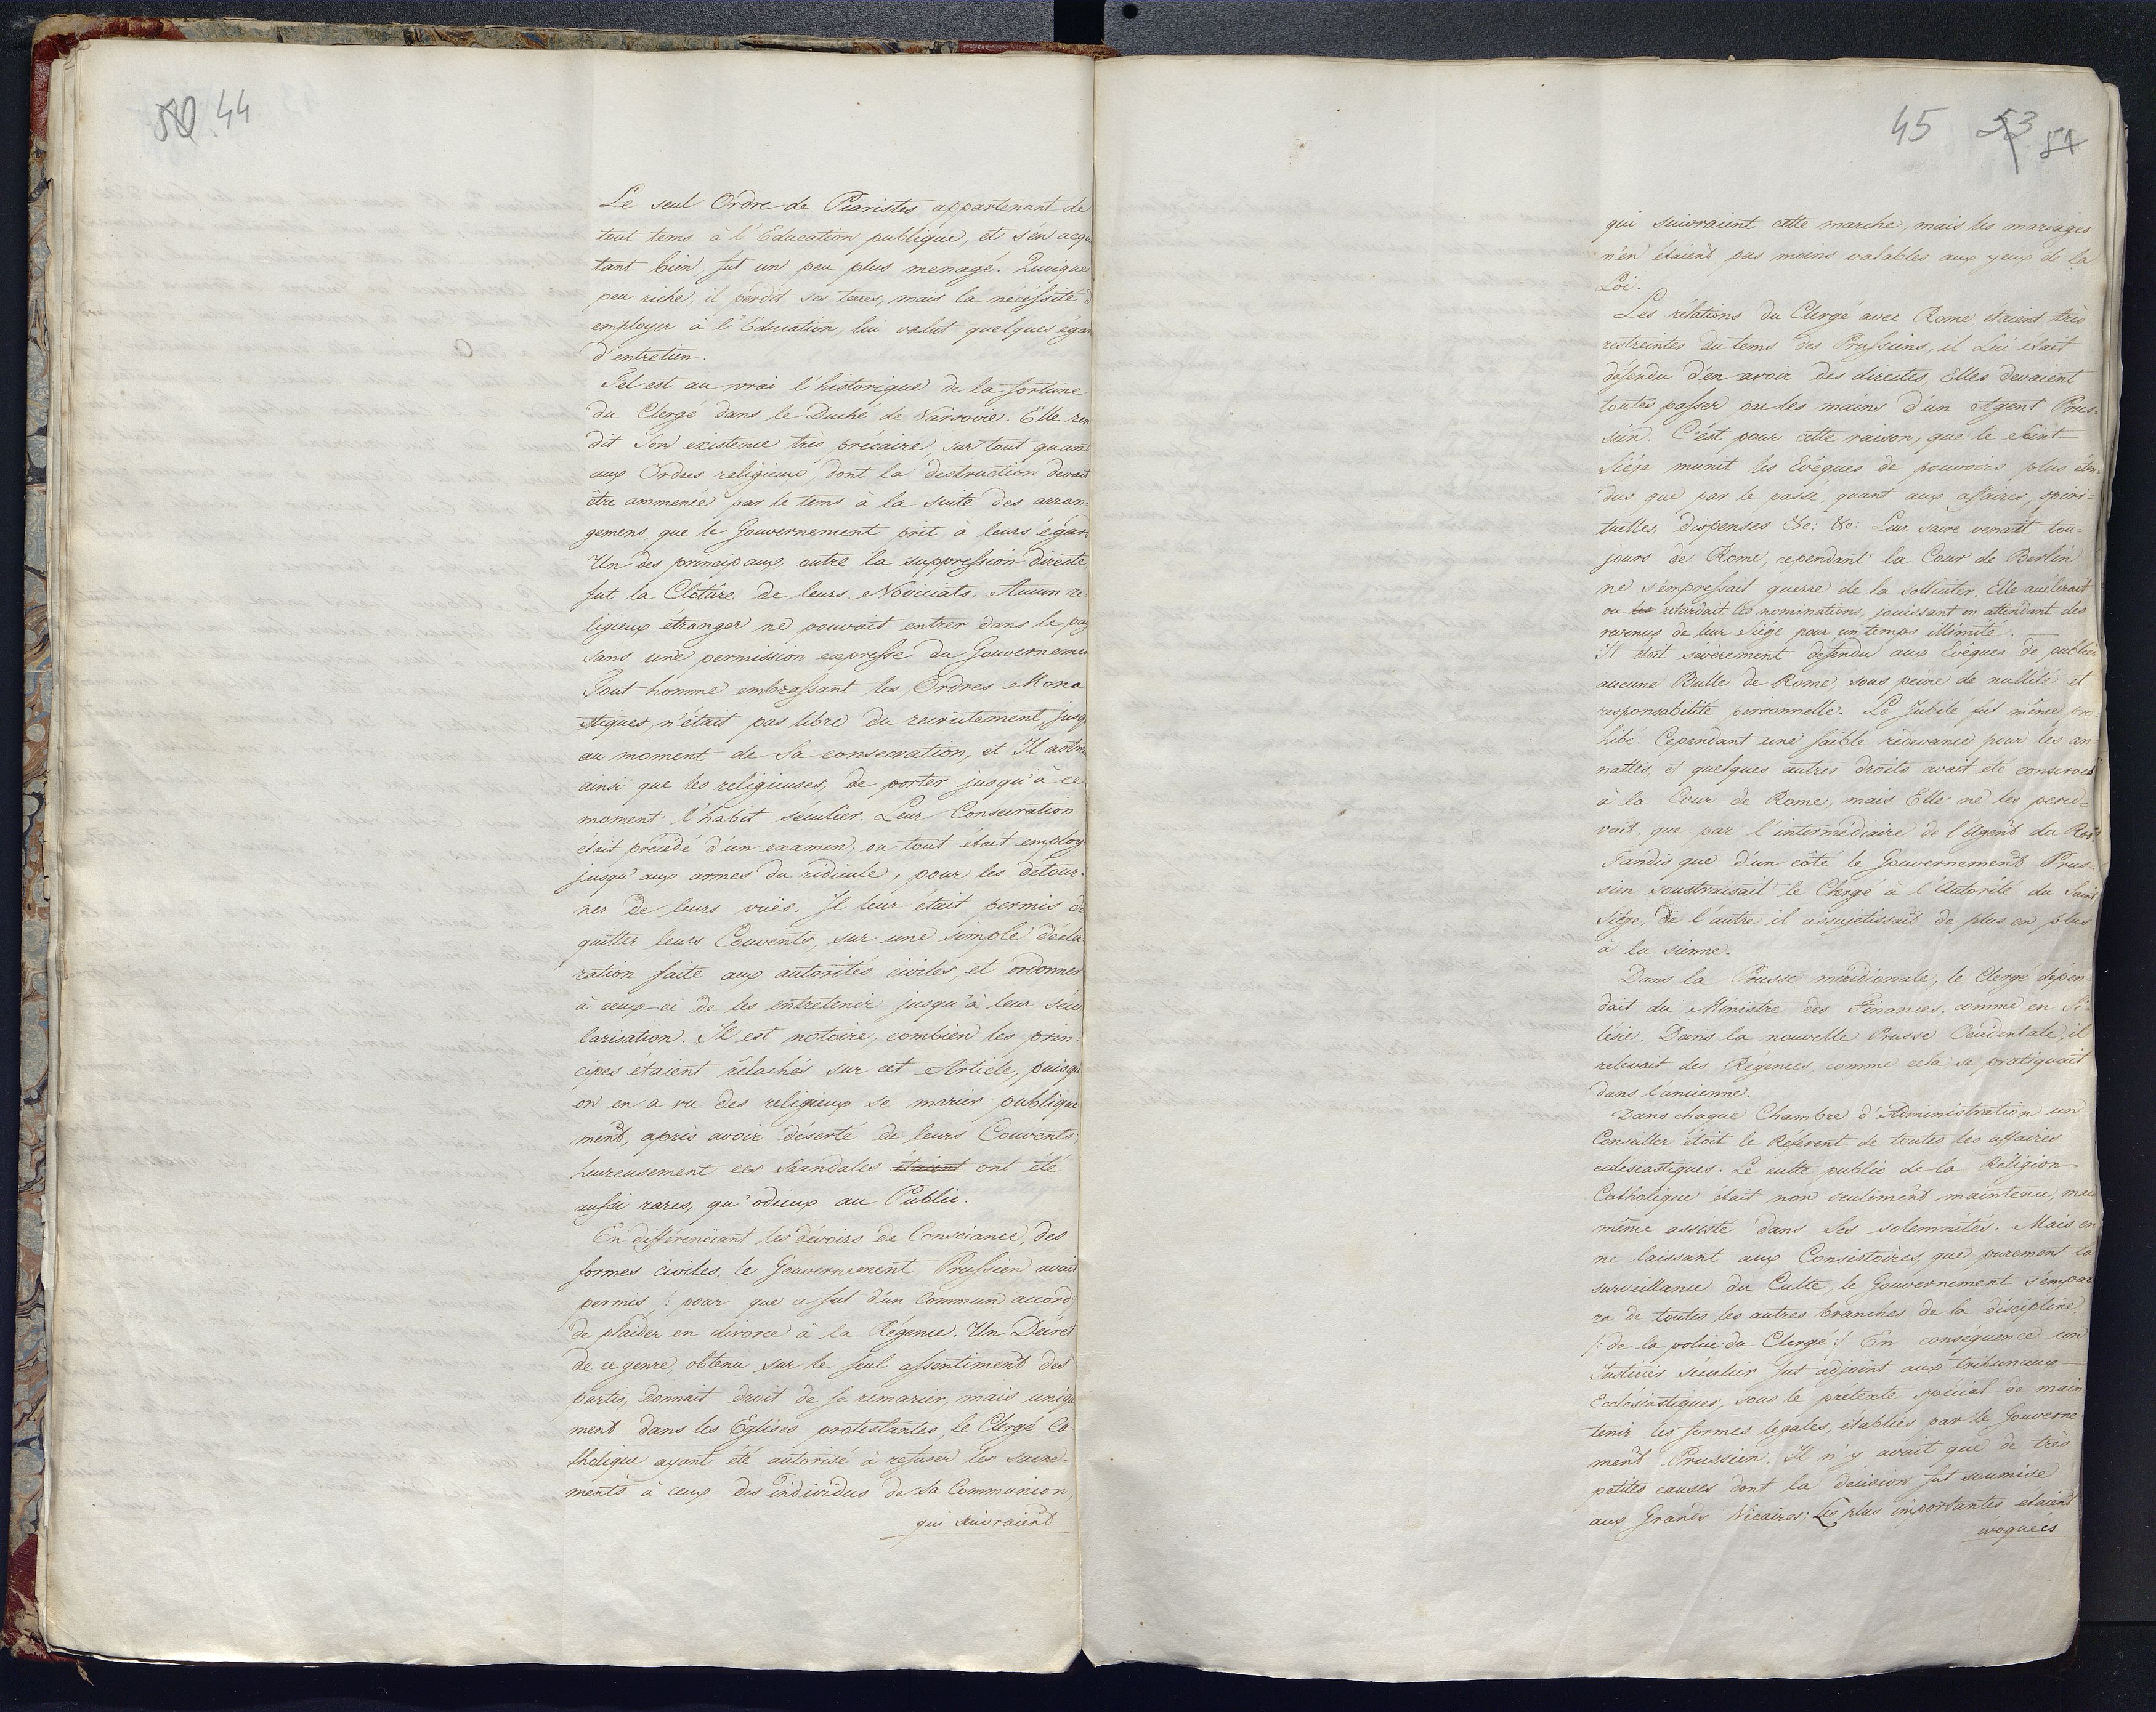 44
Le seul Ordre de Piaristes appartenant de
tout tems à l'Education publique, et s'en acqu
tant bien fut un peu plus menagé. Quoique
peu riche, il perdit ses terres, mais la nécéssité d
employer à l'Education, lui valut quelques égar
d'entretien.
Tel est au vrai l'historique de la fortune
du Clergé dans le Duché de Varsovie. Elle ren
dit son existence très précaire, sur tout quant
aux Ordres religieux, dont la destruction devait
être ammenée par le tems à la suite des arran-
gemens que le Gouvernement prit à leurs égar
Un des principaux, outre la suppression directe
fut la Clotûre de leurs Noviciats. Aucun re-
ligieux étranger ne pouvait entrer dans le pay
sans une permission expresse du Gouverneme
Tout homme embrassant les Ordres Mona
stiques, n'était pas libre du recrutement, jusq
au moment de sa consecration, et Il astre
ainsi que les religieuses, de porter jusqu'à ce
moment l'habit séculier. Leur Consecration
était précédé d'un examen, ou tout était employ
jusqu'aux armes du ridicule, pour les détour-
ner de leurs vuës. Il leur était permis de
quitter leurs Couvents, sur une simple décla
ration faite aux autorités civiles, et ordonner
à ceux-ci de les entretenir jusqu'à leur sécu
larisation. Il est notoire, combien les prin-
cipes étaient rélachés sur cet Article, puisqu
on en a vu des religieux se marier publique
ment, après avoir déserté de leurs Couvents;
heureusement ces Scandales étaient ont été
aussi rares, qu'odieux au Public.
En différenciant les dévoirs de Consciance, des
formes civiles, le Gouvernement Prussien avait
permis /: pour que ce fut d'un Commun accord:
de plaider en divorce à la Régence. Un Décret
de ce genre, obtenu sur le seul assentiment des
partis, donnait droit de se remarier, mais uniqu
ment dans les Eglises protestantes, le Clergé Ca-
tholique ayant été autorisé à refuser les sacre-
ments à ceux des Individus de sa Communion,
qui suivraient
45 53 51
qui suivraient cette marche, mais les mariages
n'en étaient pas moins valables aux yeux de la
Loi.
Les rélations du Clergé avec Rome étaient très
restreintes du tems des Prussiens, il Lui était
defendu d'en avoir des directes, Elles devaient
toutes passer par les mains d'un Agent Prus-
sien. C'est pour cette raison, que le Saint
Siége munit les Evêques de pouvoirs plus éten-
dus que par le passé, quant aux affaires, spiri-
tuelles, dispenses &c: &c: Leur sacre venait tou-
jours de Rome, cependant la Cour de Berlin
ne s'empressait guerre de la solliciter. Elle accélerait
ou les retardait les nominations, jouissant en attendant des
revenus de leur Siége pour un temps illimité.
Il était sevèrement défendu aux Evêques de publier
aucune Bulle de Rome, sous peine de nullité et
responsabilité personnelle. Le Jubilé fut même pro-
hibé. Cependant une faible redevance pour les an-
nattes, et quelques autres droits avait été conservés
à la Cour de Rome, mais Elle ne les perce-
vait, que par l'intermédiaire de l'Agent du Roi.
Tandis que d'un côté le Gouvernement Prus-
sien soustraisait le Clergé à l'Autorité du Saint
Siége, de l'autre il assujetissait de plus en plus
à la sienne.
Dans la Prusse méridionale, le Clergé dépen-
dait du Ministre des Finances, comme en Si-
lésie. Dans la nouvelle Prusse Occidentale, il
relevait des Régences, comme cela se pratiquait
dans l'ancienne.
Dans chaque Chambre d'Administration un
Conseiller étoit le Referent de toutes les affaires
eclésiastiques. Le culte public de la Religion
Catholique était non seulement maintenu, mais
même assisté dans ses solemnités. Mais en
ne laissant aux Consistoires, que purement la
surveillance du Culte, le Gouvernement s'empar
ra de toutes les autres branches de la discipline,
/: de la police du Clergé :/ En conséquence un
Justicier séculier fut adjoint aux tribunaux
Ecclésiastiques, sous le prétexte spécial de main
tenir les formes legales, établies par le Gouverne-
ment Prussien. Il n'y avait que de très
petites causes dont la decision fut soumise
aux Grands Vicaires; Les plus importantes étaient
evoquées